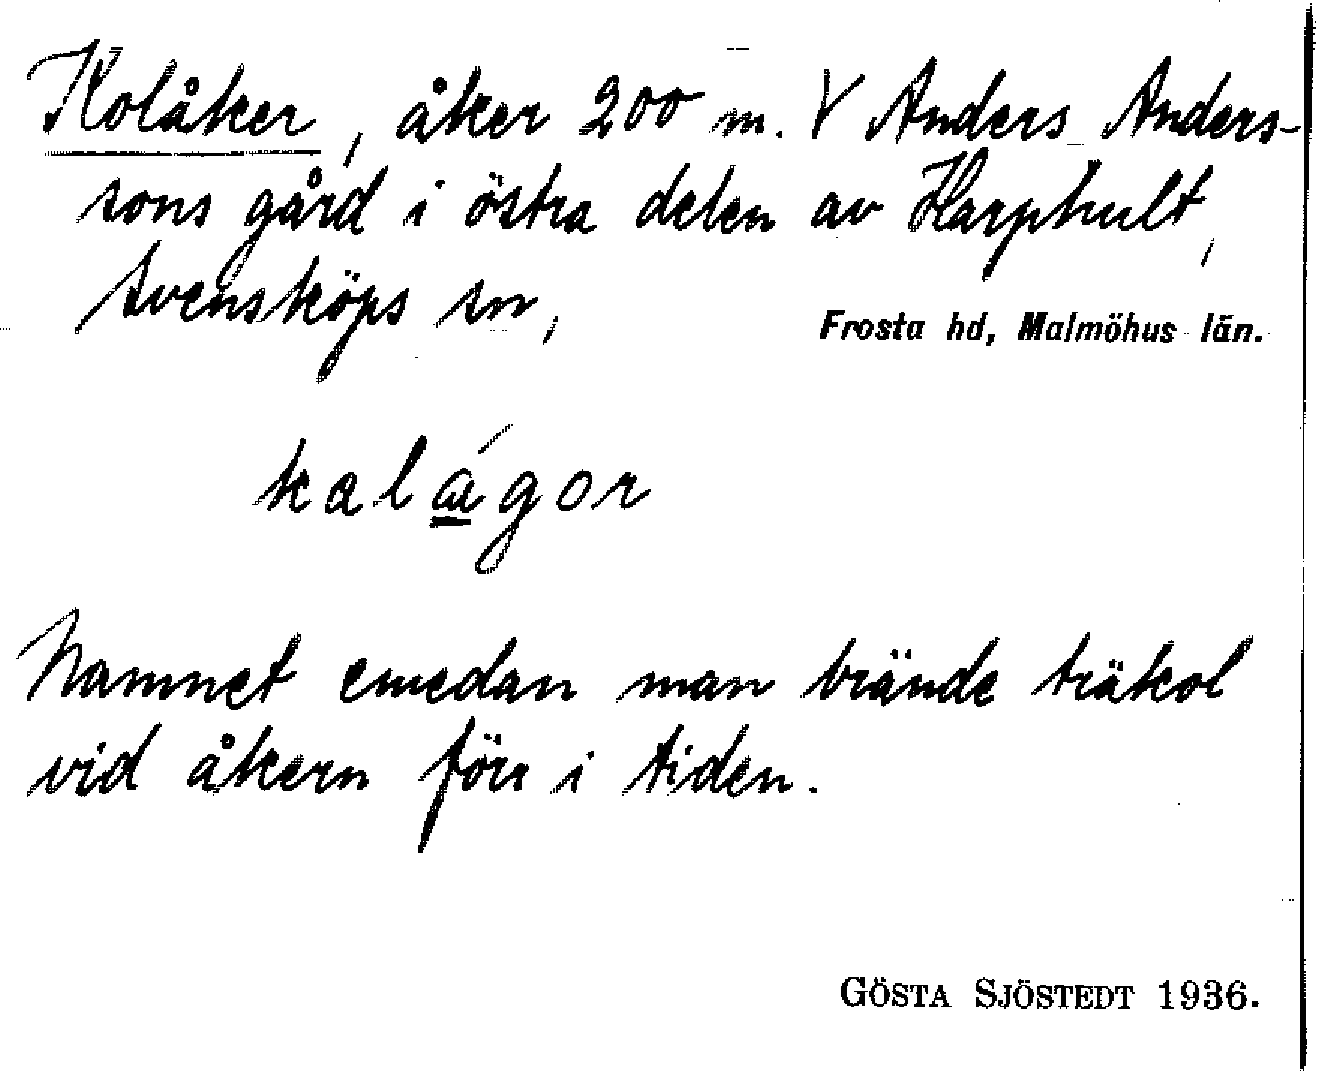 Kolåker, åker 200 m. V Anders Anders-
sons gård i östra delen av Harphult,
Svensköps sn,
Frosta hd, Malmöhus län.
kalágor
Namnet emedan man brände träkol
vid åkern förr i tiden.
GÖSTA SJÖSTEDT 1936.